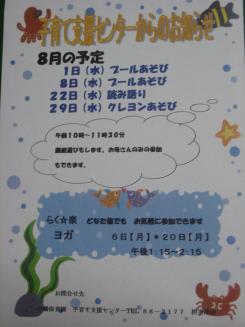 子育て支援センターからのお知らせ
8月の予定
1日（水）プールあそび
8日（水）プールあそび
22日（水）読み語り
29日（水）クレヨンあそび
午前10時～11時30分
遊びもします。お母さんのみの参加
もできます。
らく☆楽 どなた様でも お気軽に参加できます
ヨガ 6日【月】＊20日【月】
午後1:15～2:15
お問合せ先
保育園 子育て支援センターTEL 86-2177 担当